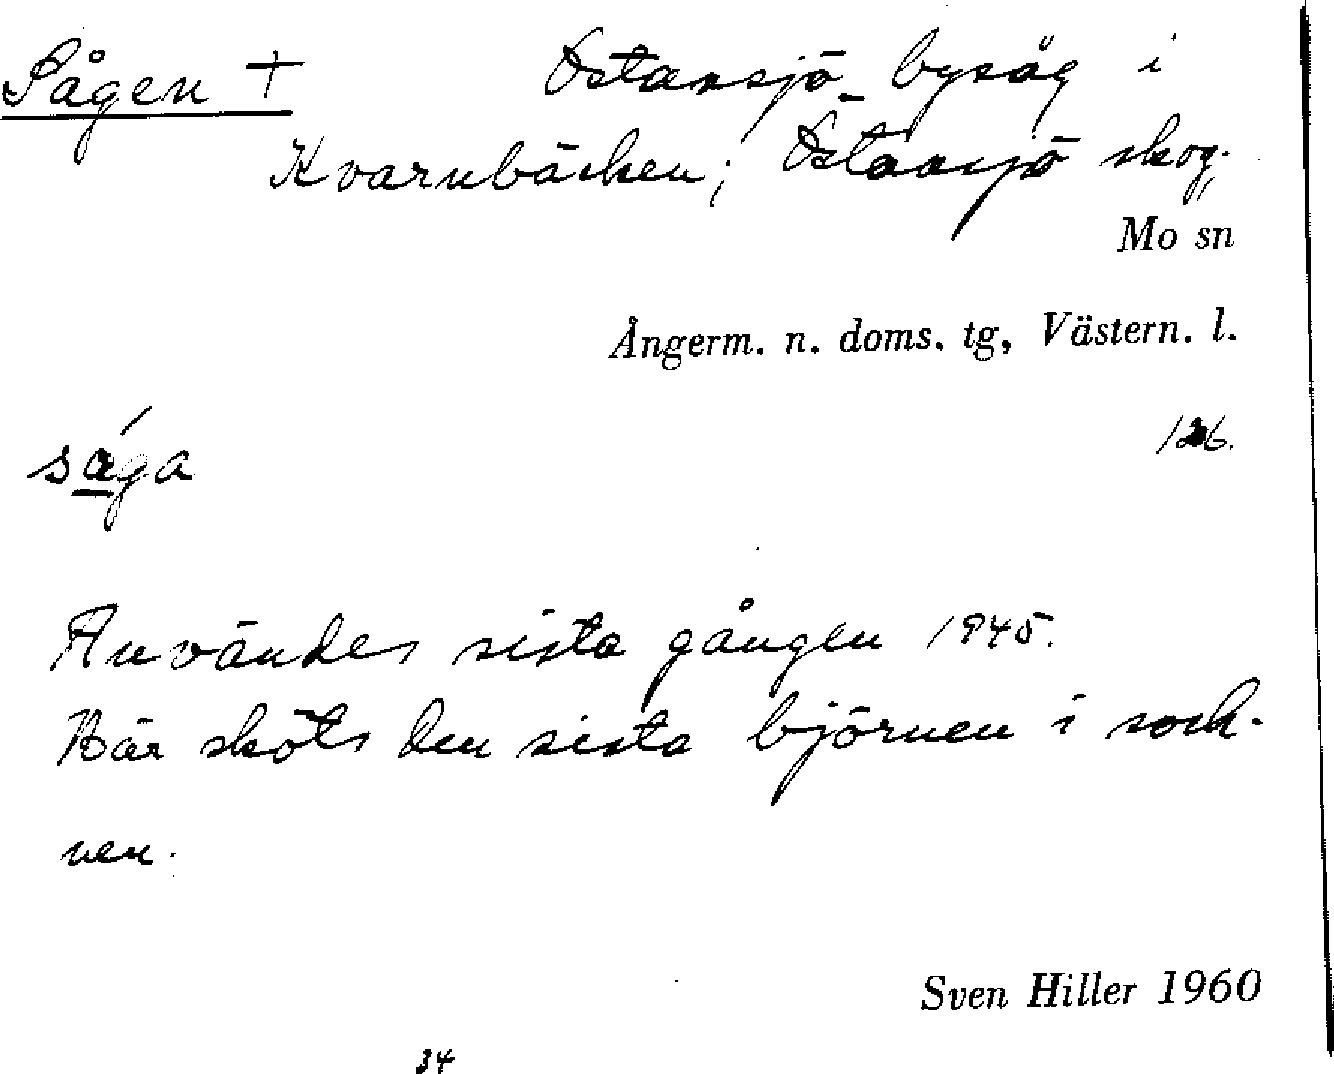 Sågen + Östansjö bysåg i
Kvarnbäcken; Östansjö skog.
Mo sn
Ångerm. n. doms. tg, Västern. l.
126.
sága
Användes sista gången 1945.
Här sköts den sista björnen i sock-
nen.
Sven Hiller 1960
34